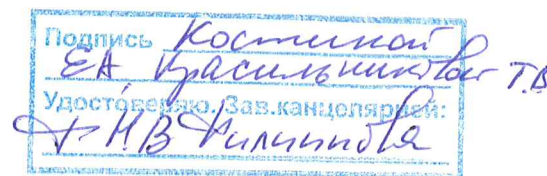 Подпись Костиной
ЕА Красильниковой Т.В
Удостоверяю. Зав.канцелярией:
Н.В Филиппова